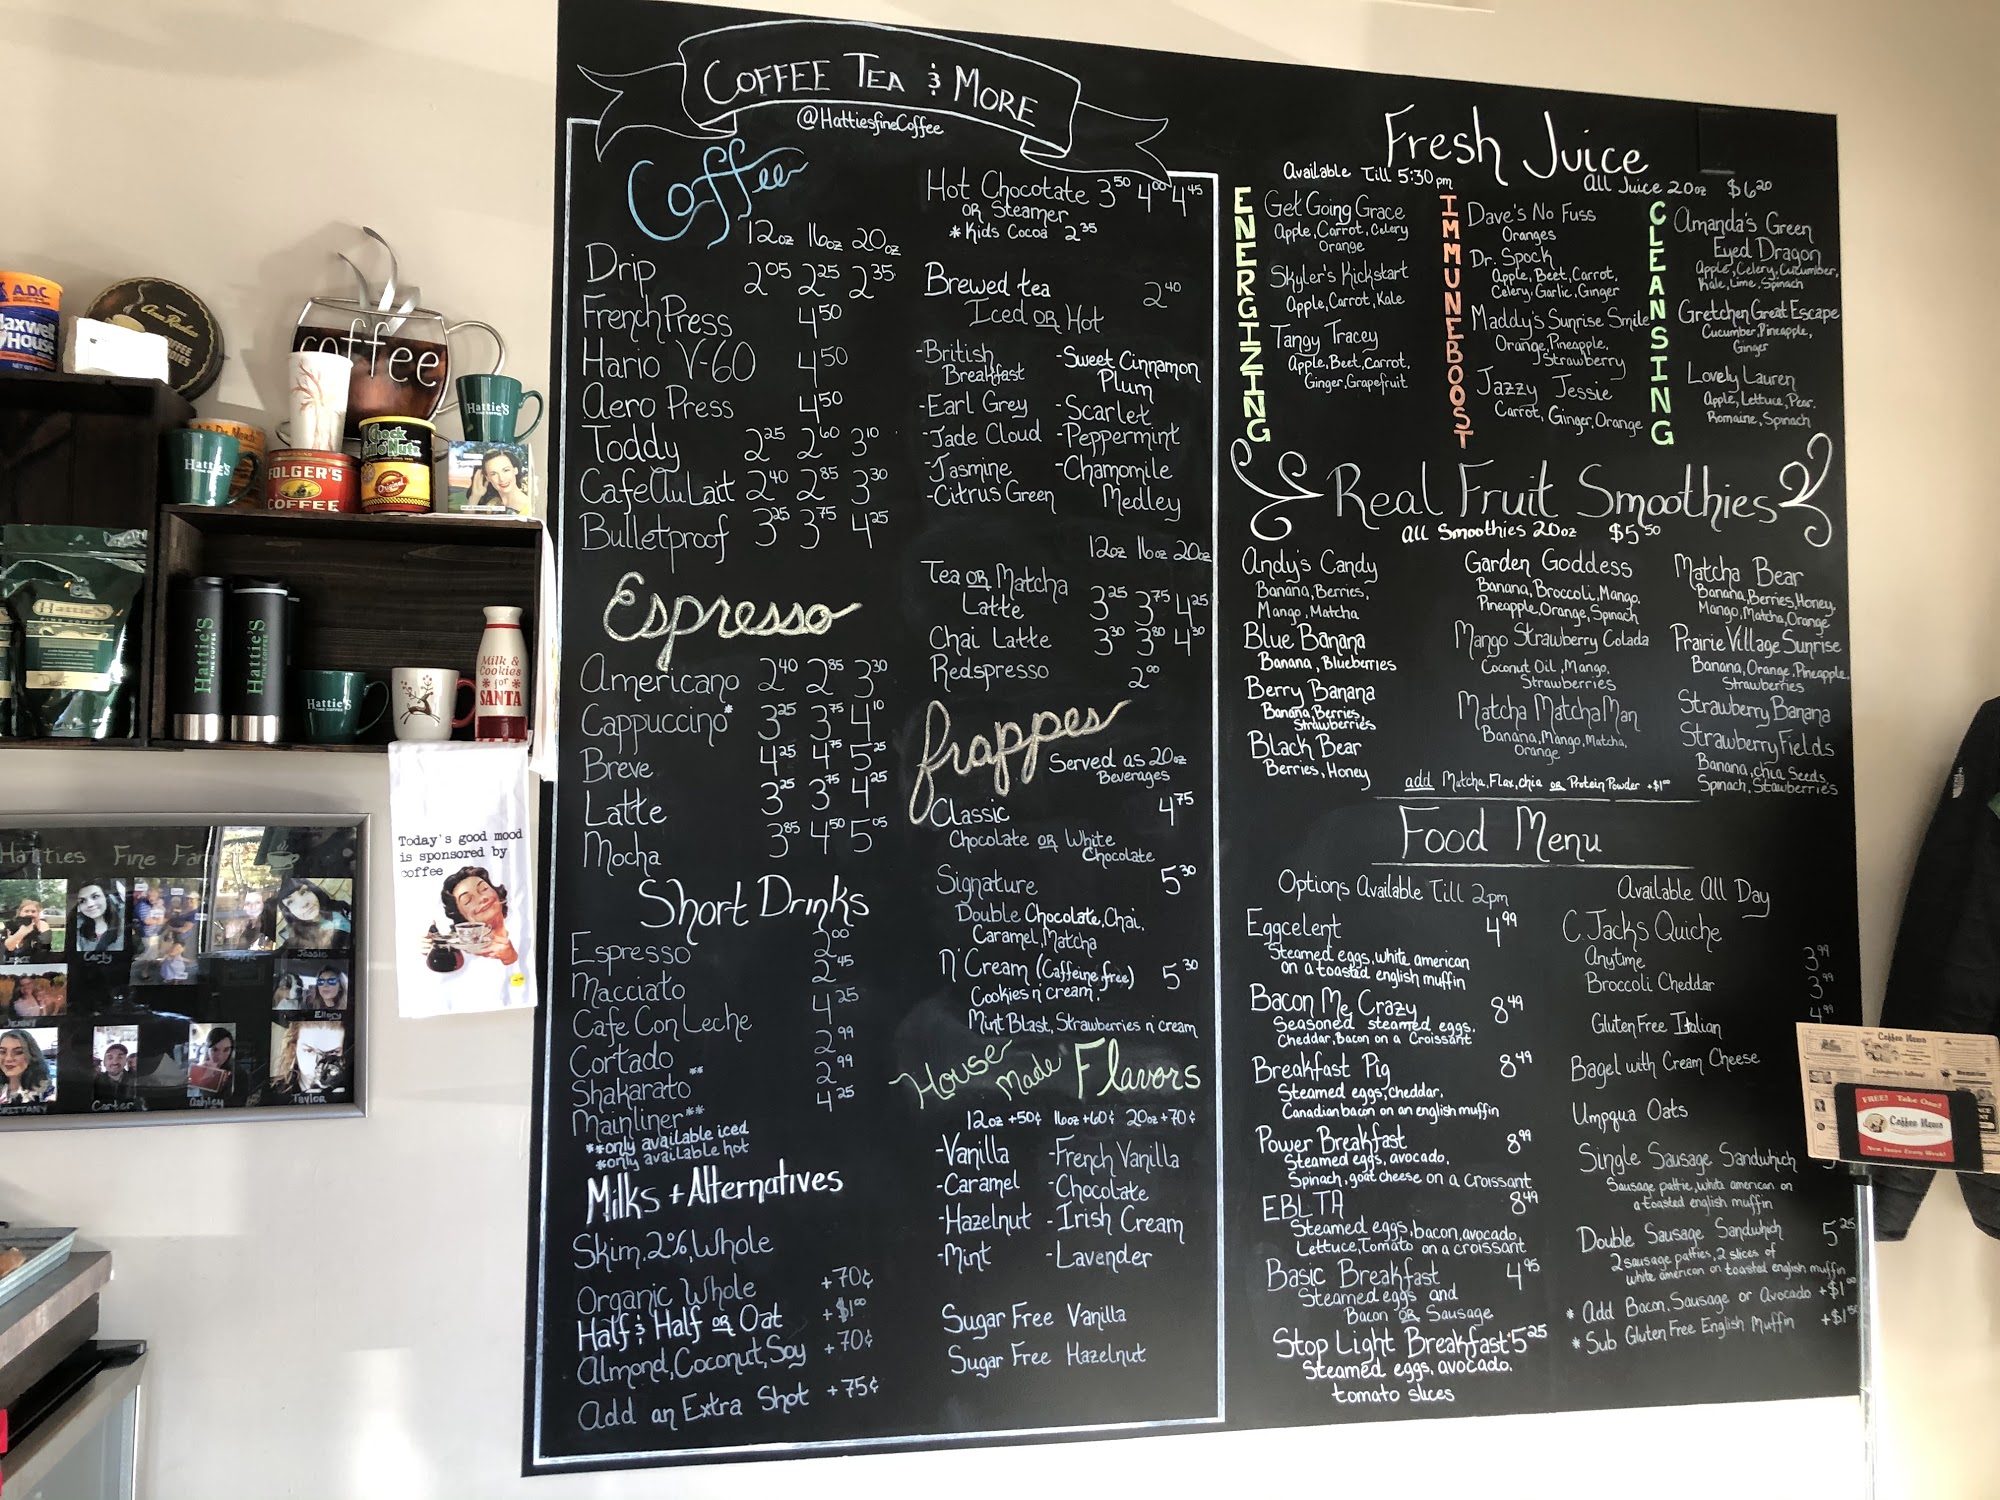 COFFEE TEA & MORE
@HattiesfineCoffee
Coffee
12oz 16oz 20oz
Drip 2.05 2.25 2.35
French Press 4.50
Hario V-60 4.50
Aero Press 4.50
Toddy 2.25 2.60 3.10
Cafe Au Lait 2.40 2.85 3.30
Bulletproof 3.25 3.75 4.25
Espresso
Americano 2.40 2.85 3.30
Cappuccino* 3.25 3.75 4.10
Breve 4.25 4.75 5.25
Latte 3.25 3.75 4.25
Mocha 3.85 4.50 5.05
Short Drinks
Espresso 2.00
Macciato 2.45
Cafe Con Leche 4.25
Cortado 2.99
Shakarato** 2.99
Mainliner** 4.25
**only available iced
*only available hot
Milks + Alternatives
Skim, 2%, Whole
Organic Whole +70¢
Half & Half OR Oat +$1.00
Almond, Coconut, Soy +70¢
Add an Extra Shot +75¢
Hot Chocotate 3.50 4.00 4.45
OR Steamer
*Kids Cocoa 2.35
Brewed tea 2.40
Iced OR Hot
-British Breakfast
-Earl Grey
-Jade Cloud
-Jasmine
-Citrus Green
-Sweet Cinnamon Plum
-Scarlet
-Peppermint
-Chamomile Medley
12oz 16oz 20oz
Tea OR Matcha
Latte 3.25 3.75 4.25
Chai Latte 3.30 3.80 4.30
Redspresso 2.00
frappes
Served as 20oz
Beverages
Classic 4.75
Chocolate OR White
Chocolate
Signature 5.30
Double Chocolate, Chai,
Caramel, Matcha
N' Cream (Caffeine free) 5.30
Cookies n' cream,
Mint Blast, Strawberries n' cream
House Made Flavors
12oz +50¢ 16oz +60¢ 20oz +70¢
-Vanilla -French Vanilla
-Caramel -Chocolate
-Hazelnut -Irish Cream
-Mint -Lavender
Sugar Free Vanilla
Sugar Free Hazelnut
Fresh Juice
Available Till 5:30pm
All Juice 20oz $6.20
ENERGIZING
Get Going Grace
Apple, Carrot, Celery
Orange
Skyler's Kickstart
Apple, Carrot, Kale
Tangy Tracey
Apple, Beet, Carrot,
Ginger, Grapefruit
IMMUNEBOOST
Dave's No Fuss
Oranges
Dr. Spock
Apple, Beet, Carrot,
Celery, Garlic, Ginger
Maddy's Sunrise Smile
Orange, Pineapple,
Strawberry
Jazzy Jessie
Carrot, Ginger, Orange
CLEANSING
Amanda's Green
Eyed Dragon
Apple, Celery, Cucumber,
Kale, Lime, Spinach
Gretchen Great Escape
Cucumber, Pineapple,
Ginger
Lovely Lauren
Apple, Lettuce, Pear,
Romaine, Spinach
Real Fruit Smoothies
All Smoothies 20oz $5.50
Andy's Candy
Banana, Berries,
Mango, Matcha
Blue Banana
Banana, Blueberries
Berry Banana
Banana, Berries,
Strawberries
Black Bear
Berries, Honey
Garden Goddess
Banana, Broccoli, Mango,
Pineapple, Orange, Spinach
Mango Strawberry Colada
Coconut Oil, Mango,
Strawberries
Matcha Matcha Man
Banana, Mango, Matcha,
Orange
Matcha Bear
Banana, Berries, Honey,
Mango, Matcha, Orange
Prairie Village Sunrise
Banana, Orange, Pineapple,
Strawberries
Strawberry Banana
Strawberry Fields
Banana, Chia Seeds,
Spinach, Stawberries
add Matcha, Flax, Chia OR Protein Powder +$1.00
Food Menu
Options Available Till 2pm
Eggcelent 4.99
Steamed eggs, white american
on a toasted english muffin
Bacon Me Crazy 8.49
Seasoned steamed eggs,
Cheddar, Bacon on a Croissant
Breakfast Pig 8.49
Steamed eggs, cheddar,
Canadian bacon on an english muffin
Power Breakfast 8.99
Steamed eggs, avocado,
Spinach, goat cheese on a croissant
EBLTA 8.49
Steamed eggs, bacon, avocado,
Lettuce, Tomato on a croissant
Basic Breakfast 4.95
Steamed eggs and
Bacon OR Sausage
Stop Light Breakfast 5.25
Steamed eggs, avocado,
tomato slices
Available All Day
C. Jacks Quiche
Anytime 3.99
Broccoli Cheddar 3.99
Gluten Free Italian 4.99
Bagel with Cream Cheese
Umpqua Oats
Single Sausage Sandwhich
Sausage pattie, white american on
a toasted english muffin
Double Sausage Sandwhich 5.25
2 sausage patties, 2 slices of
white american on toasted english muffin
* Add Bacon, Sausage or Avocado +$1.00
* Sub Gluten Free English Muffin +$1.50
A.D.C.
Maxwell
HOUSE
coffee
HattieS
HattieS
FOLGER'S
COFFEE
Chock
Original
HattieS
FINE COFFEE
HattieS
FINE COFFEE
HattieS
FINE COFFEE
HattieS
Milk &
Cookies
for
SANTA
Today's good mood
is sponsored by
coffee
Hatties Fine Fam
Carly
Jessie
Jenny
Ellery
Brittany
Carter
Ashley
Taylor
Coffee News
FREE! Take One!
Coffee News
New Issue Every Week!